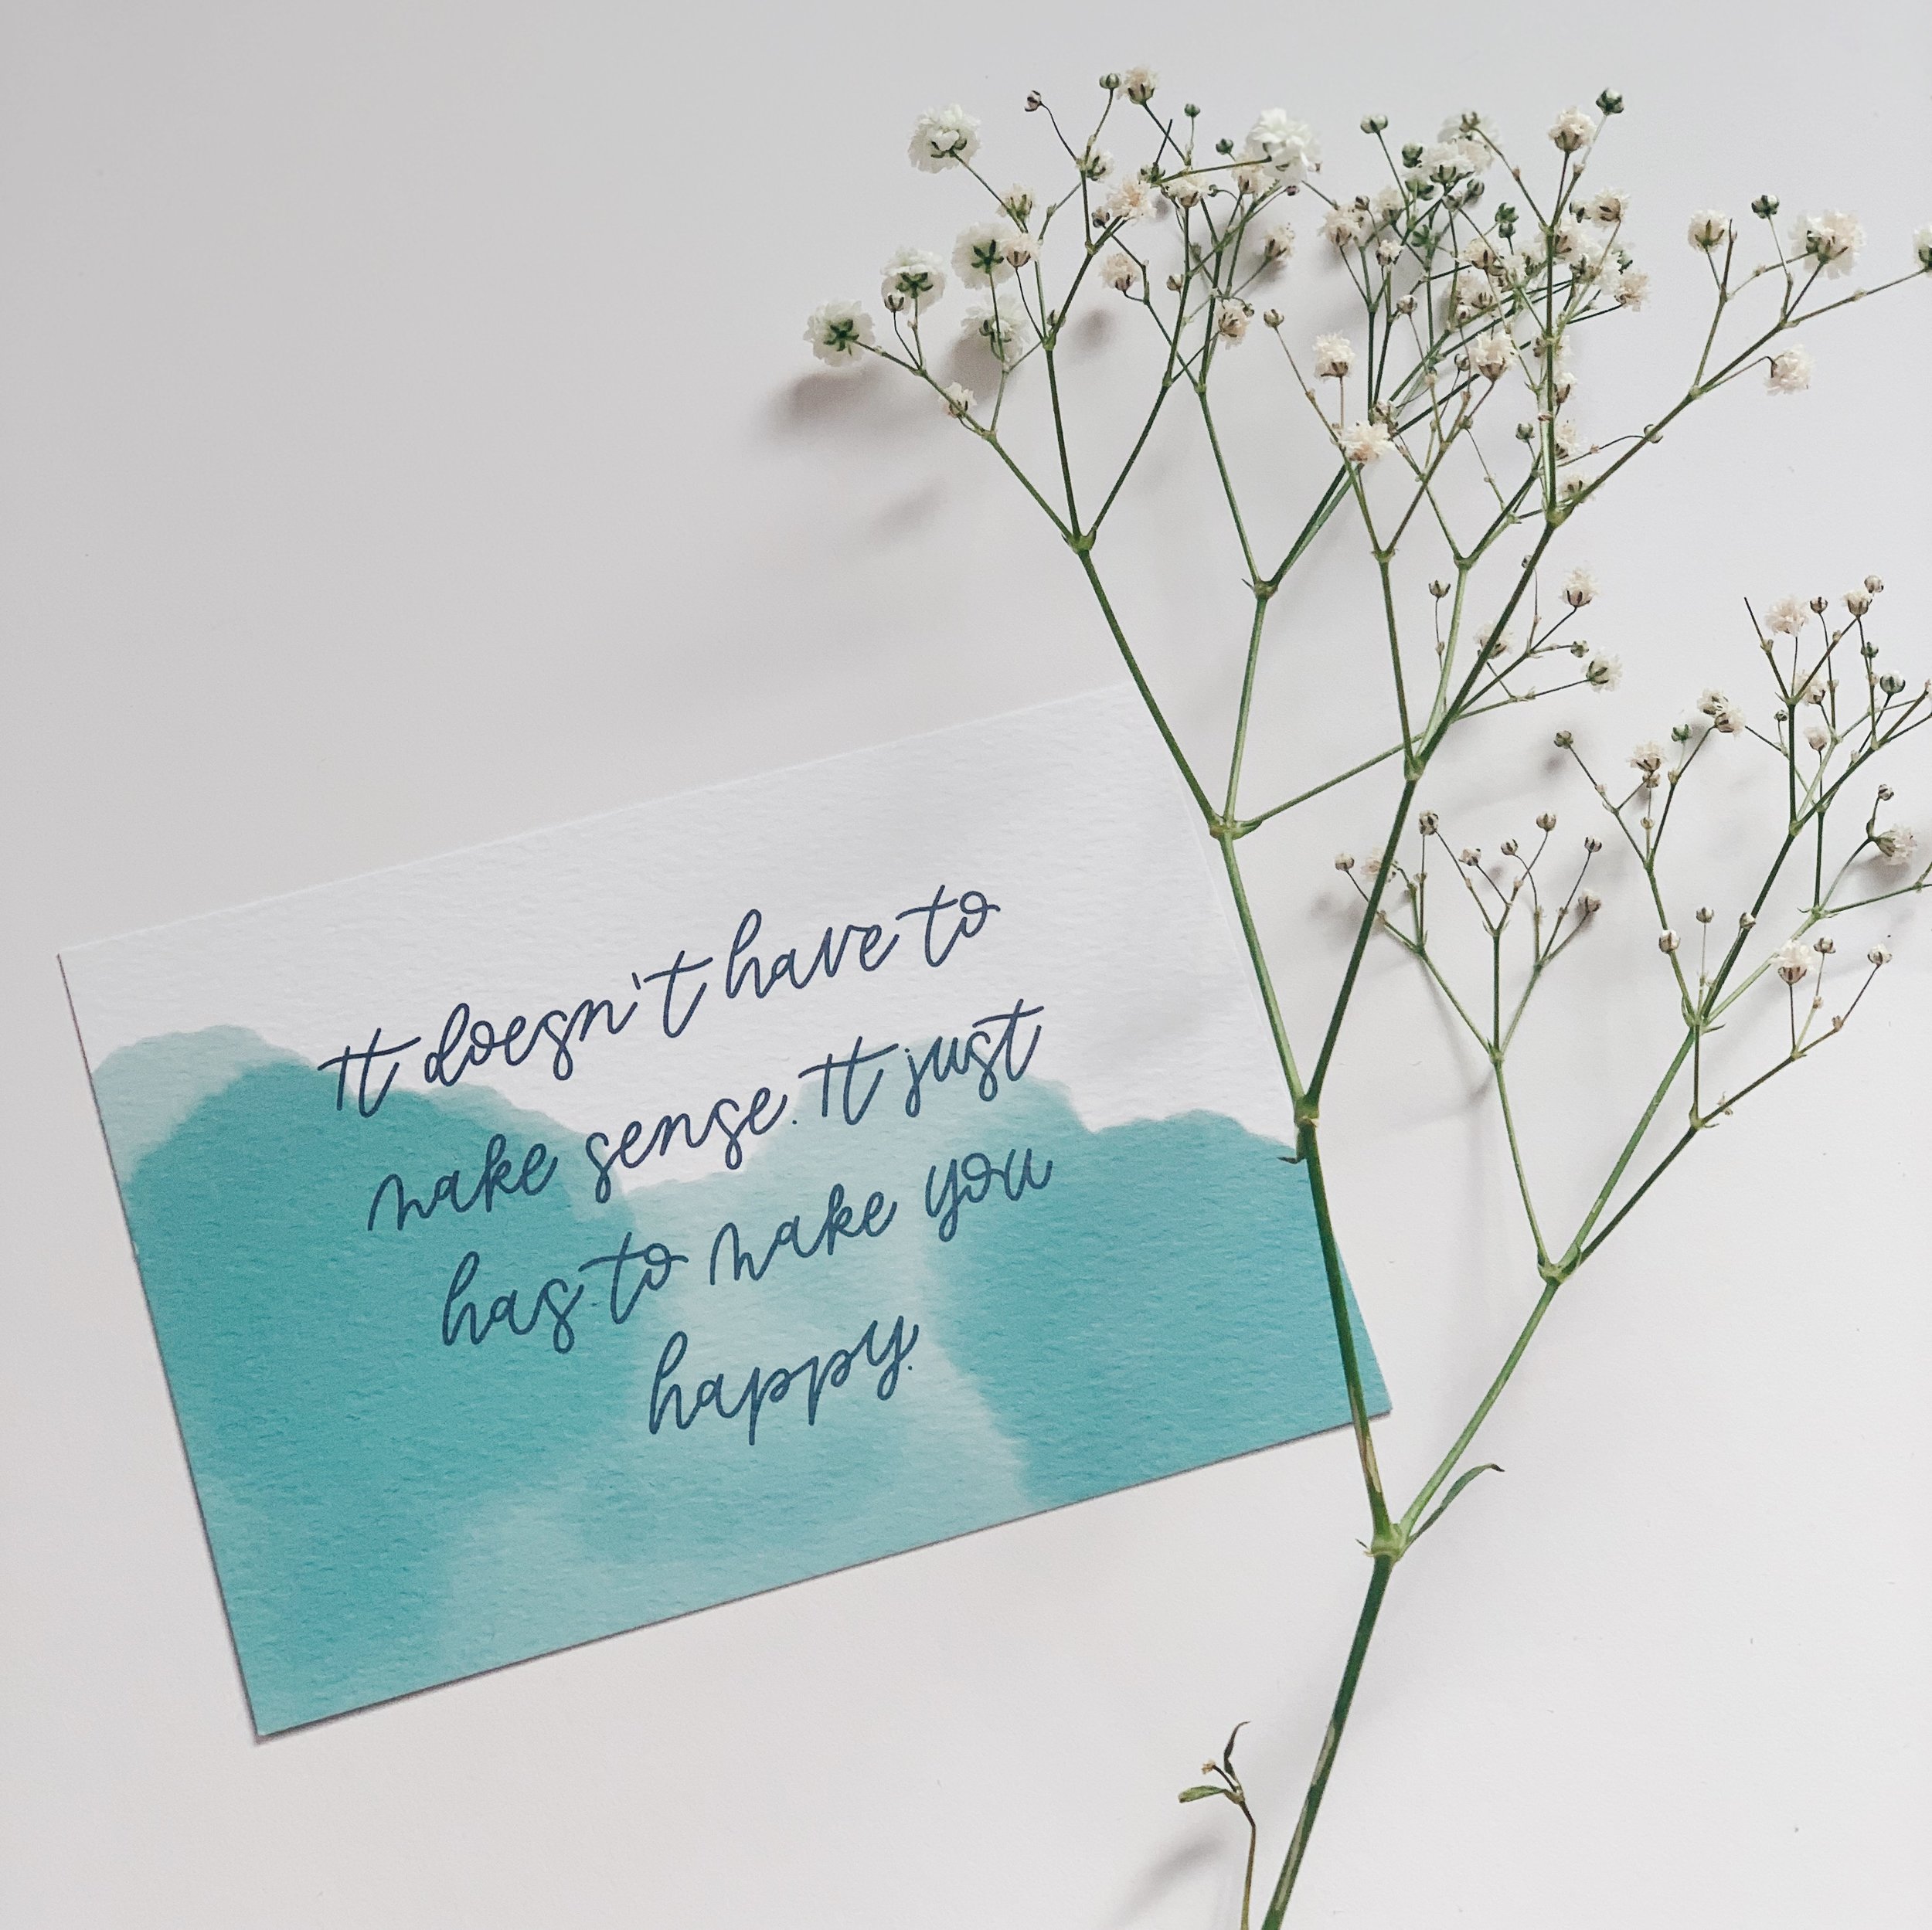 It doesn't have to
make sense. It just
has to make you
happy.